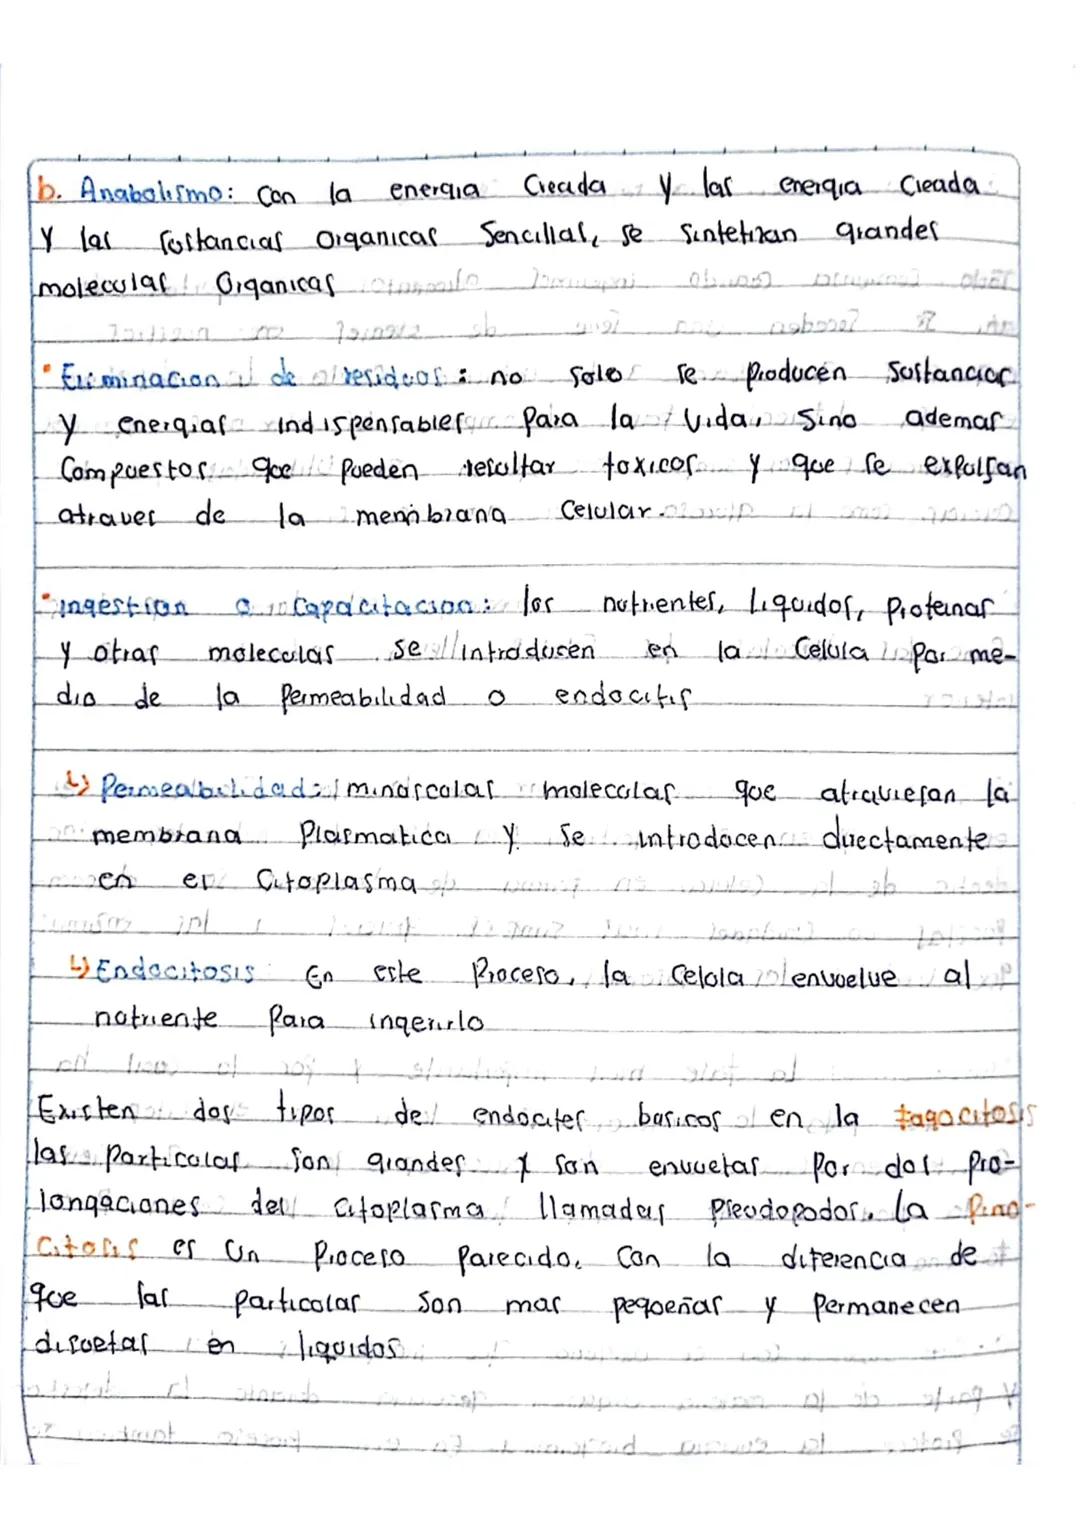 b. Anabolismo: Con la energia Creada y las energia Creada
Y las sustancias Organicas Sencillas, se Sintetizan grandes
moleculas Organicas
• Eliminacion de residuos: no solo se producen Sustancias
y energias indispensables para la Vida, Sino ademas
Compuestos que pueden resultar toxicos y que se expulsan
atraves de la membrana Celular.
• ingestion o Capacitacion: los nutrientes, Liquidos, Proteinas
y otras moleculas se introducen en la Celula por me-
dio de la Permeabilidad o endocitis
↳ Permeabilidad: minusculas moleculas que atraviesan la
membrana Plasmatica y se introducen directamente
en el Citoplasma
↳ Endocitosis En este Proceso, la Celula envuelve al
nutriente Para ingerirlo
Existen dos tipos de endocites basicos en la fagocitosis
las Particulas son grandes y son envuetas Por dos Pro-
longaciones del citoplasma llamadas Pseudopodos. La Pino-
Citosis es Un Proceso Parecido, Con la diferencia de
que las particulas son mas pequeñas y Permanecen
disueltas en liquidos